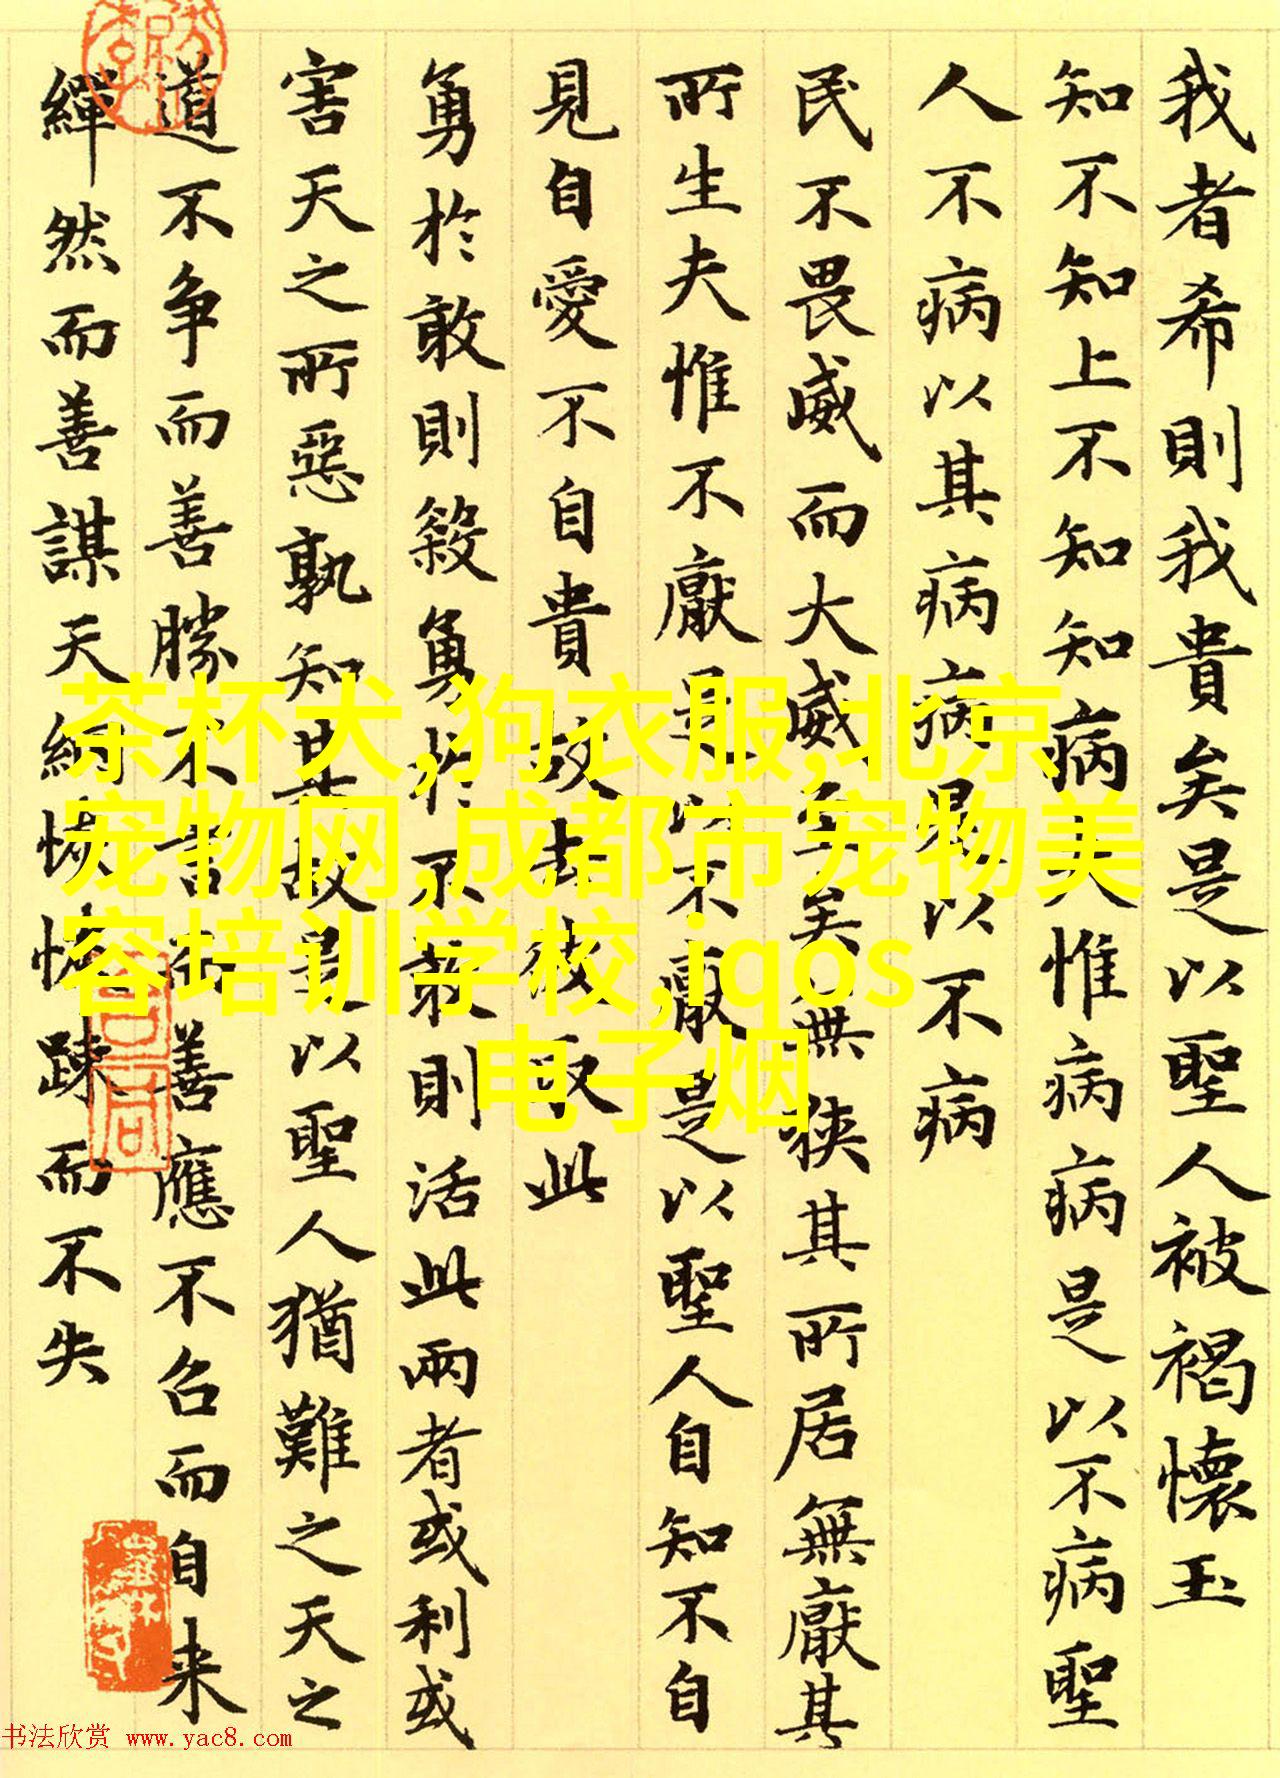 我者希則我貴矣是以聖人被褐懷玉
知不知上不知知病夫惟病病是以不病聖
人不病以其病病是以不病
民不畏威而大威至矣無狹其所居無厭其
所生夫惟不厭是以不厭是以聖人自知不自
見自愛不自貴故去彼取此
勇於敢則殺勇於不敢則活此兩者或利或
害天之所惡孰知其故是以聖人猶難之天之
道不争而善勝不言而善應不召而自来
繟然而善謀天網恢恢踈而不失
茶杯犬,狗衣服,北京
宠物网,成都市宠物美
容培训学校,iqos
电子烟
书法欣赏 www.yac8.com